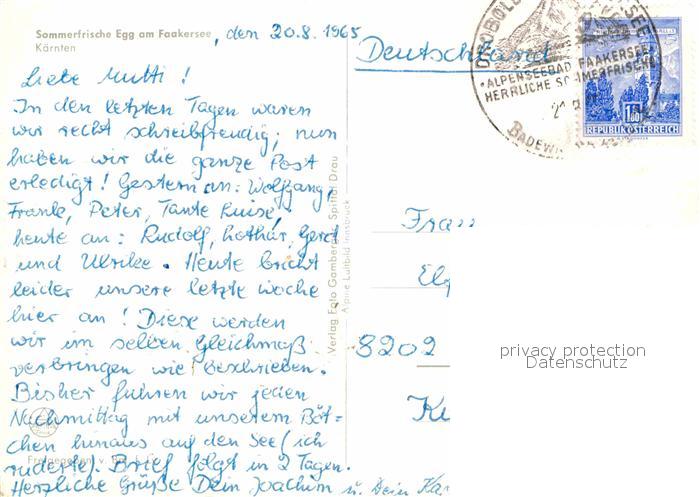 Sommerfrische Egg am Faakersee, den 20.8.1965
Kärnten
Liebe Mutti!
In den letzten Tagen waren
wir recht schreibfreudig; nun
haben wir die ganze Post
erledigt! Gestern an: Wolfgang,
Frank, Peter, Tante Luise,
heute an: Rudolf, Lothar, Gerd
und Ulrike. Heute bricht
leider unsere letzte Woche
hier an! Diese werden
wir im selben Gleichmaß
verbringen wie beschrieben.
Bisher fuhren wir jeden
Nachmittag mit unserem Böt=
chen hinaus auf den See (ich
ruderte). Brief folgt in 2 Tagen.
Herzliche Grüße Dein Joachim u. Dein Ka
Freigegeben v.
Verlag Foto Gamberger, Spittal Drau
Alpine Luftbild Innsbruck
Deutschland
ALPENSEEBAD FAAKERSEE
HERRLICHE SOMMERFRISCHE
1.80
REPUBLIK ÖSTERREICH
Frau
8202
privacy protection
Datenschutz